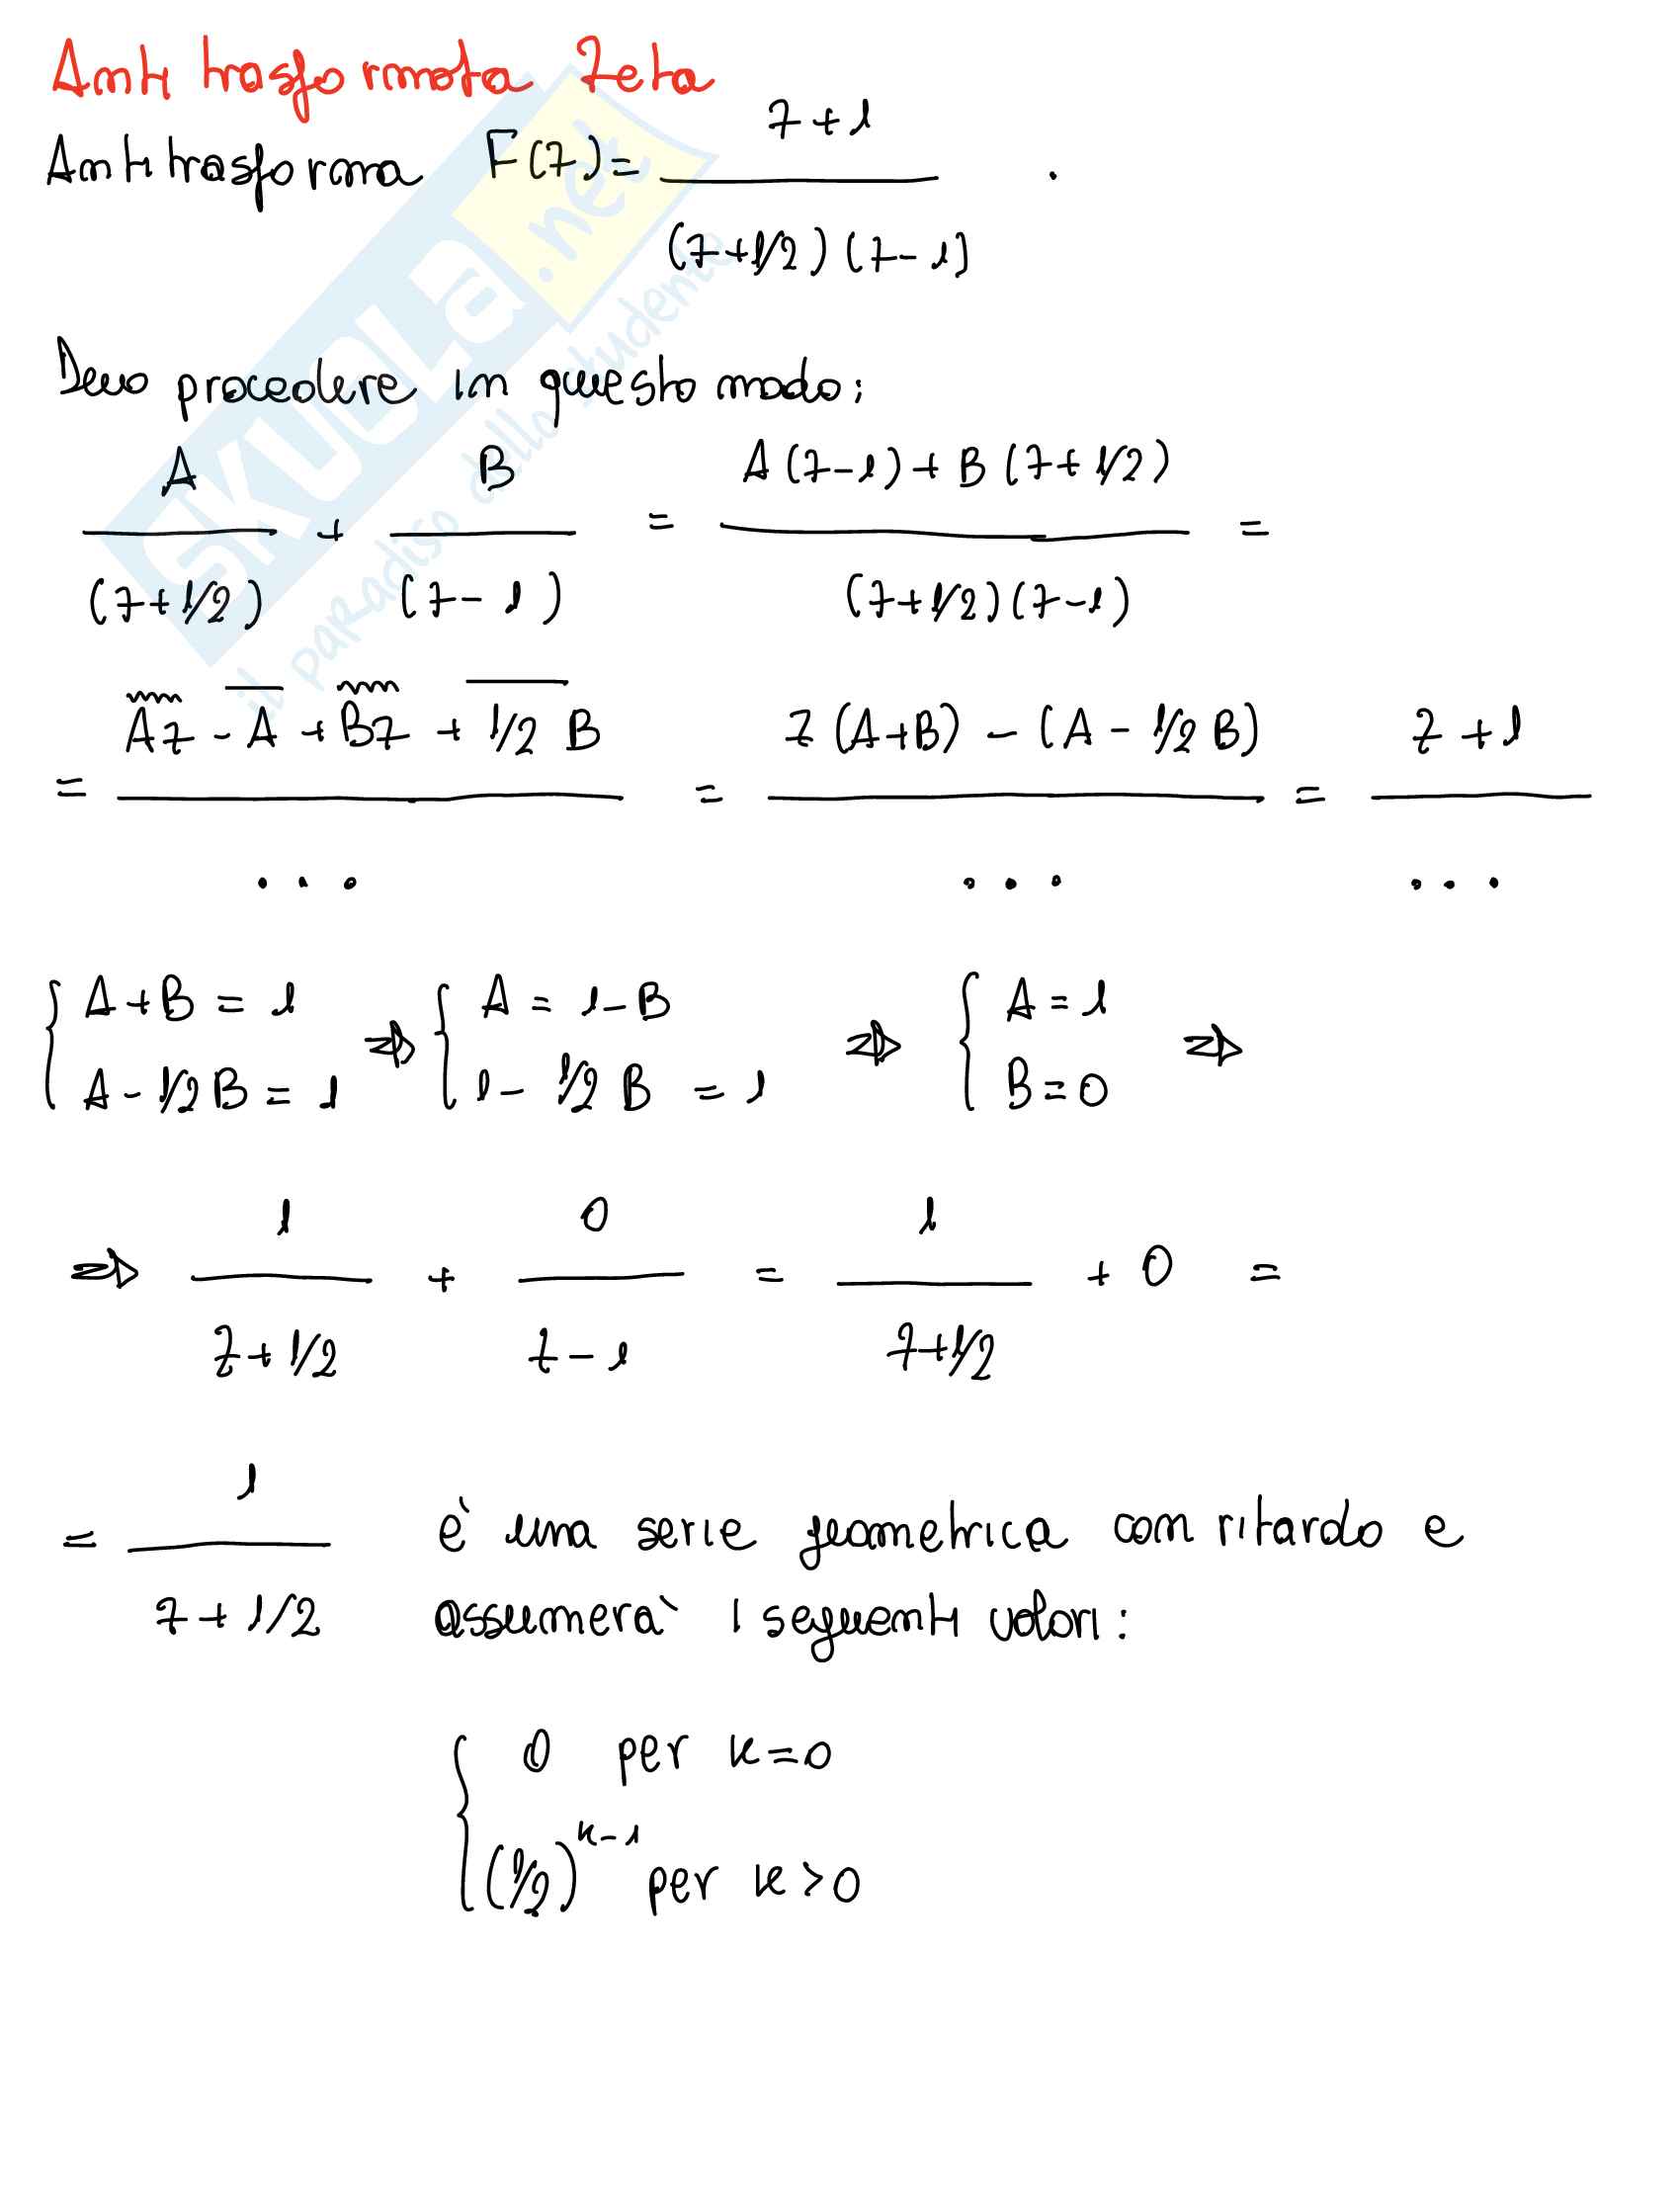 Antitrasformata Zeta
Antitrasforma F(z) = z+1 / (z+1/2)(z-1) .
Devo procedere in questo modo:
A / (z+1/2) + B / (z-1) = A(z-1) + B(z+1/2) / (z+1/2)(z-1) =
= Az - A + Bz + 1/2 B / ... = z(A+B) - (A - 1/2 B) / ... = z+1 / ...
{ A+B = 1 ⇒ { A = 1-B ⇒ { A = 1 ⇒
A - 1/2 B = 1 1 - 1/2 B = 1 B = 0
⇒ 1 / z+1/2 + 0 / z-1 = 1 / z+1/2 + 0 =
= 1 / z+1/2 è una serie geometrica con ritardo e
assumerà i seguenti valori:
{ 0 per k=0
(1/2)^k-1 per k>0
SKUOLA.net
il paradiso dello studente